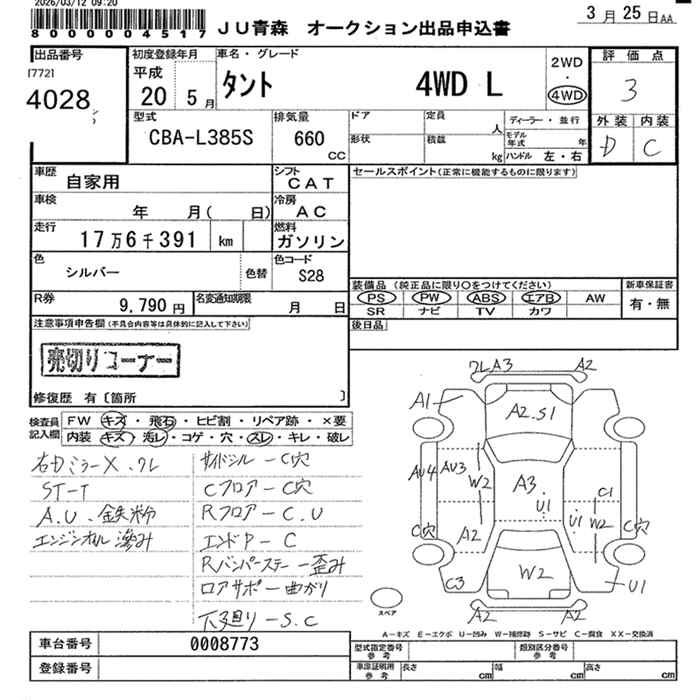 2026/03/12 09:20
8000004517
JU青森 オークション出品申込書
3月25日AA
出品番号
[772]
4028
初度登録年月
平成
20 5月
車名・グレード
タント 4WD L
2WD
・
4WD
評価点
3
外装 内装
D C
型式
CBA-L385S
排気量
660
CC
ドア
形状
定員
人
積載
kg
ディーラー・並行
モデル年式 年
ハンドル 左・右
車歴
自家用
シフト
CAT
セールスポイント(正常に機能するものに限ります)
車検
年 月( 日)
冷房
AC
走行
17万6千391 km
燃料
ガソリン
色
シルバー
色替
色コード
S28
装備品 (純正品に限り○をつけてください)
PS PW ABS エアB AW
SR ナビ TV カワ
新車保証書
有・無
R券
9,790円
名変通知期限
月 日
後日品
注意事項申告欄(不具合内容等は具体的に記入して下さい)
売切りコーナー
修復歴 有〔箇所 〕
検査員記入欄
FW キズ・飛石・ヒビ割・リペア跡・×要
内装 キズ・汚レ・コゲ・穴・スレ・キレ・破レ
右ドミラーX.ワレ
ST-T
A.U.鉄粉
エンジンオイル滲み
サイドシル-C穴
Cフロア-C穴
Rフロア-C.U
エンドP-C
Rバンパーステー-歪み
ロアサポ-曲がり
下廻り-S.C
ワレA3 A2
A1
A2.S1
AU4 AU3
W2
A3
U1
U1
C1
W2
C穴
A2
C穴
C3
W2
U1
A2 A2
スペア
A-キズ E-エクボ U-凹み W-補修跡 S-サビ C-腐食 XX-交換済
車台番号
0008773
登録番号
型式指定番号
参考
類別区分番号
参考
車庫証明用
参考
長さ cm
幅 cm
高さ cm